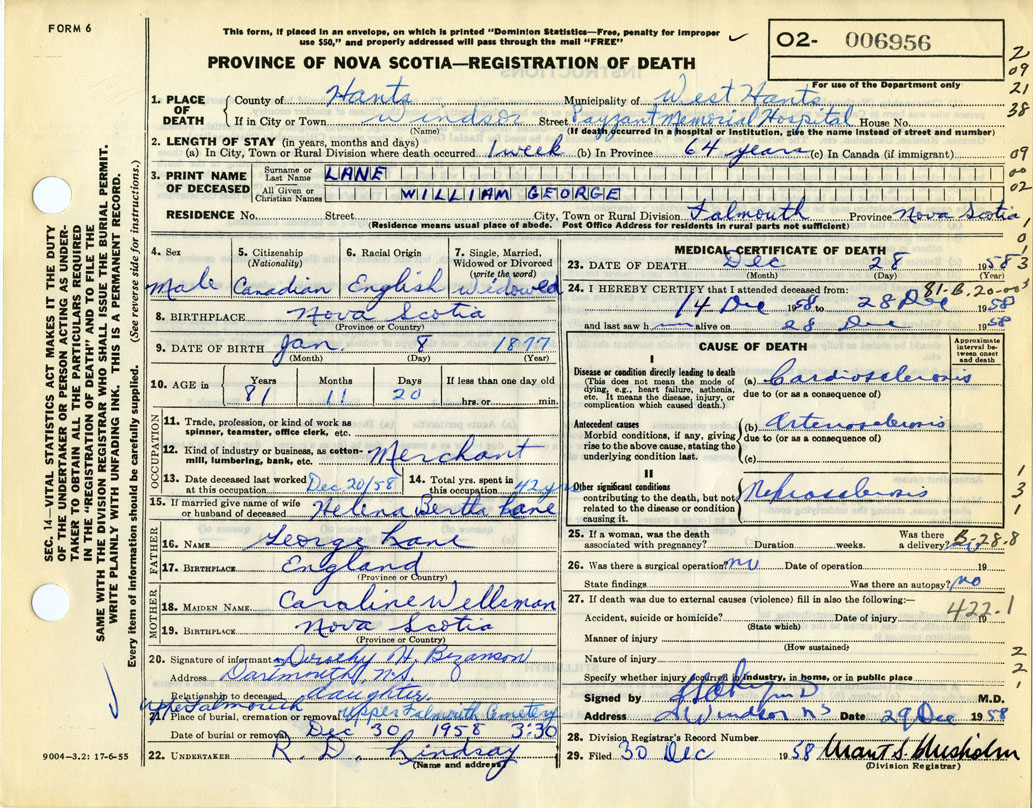 FORM 6
This form, if placed in an envelope, on which is printed "Dominion Statistics—Free, penalty for improper
use $50," and properly addressed will pass through the mail "FREE"
O2- 006956
PROVINCE OF NOVA SCOTIA—REGISTRATION OF DEATH
For use of the Department only
2
09
21
38
1. PLACE OF DEATH County of Hants Municipality of West Hants
If in City or Town Windsor Street Payzant Memorial Hospital House No.
(Name) (If death occurred in a hospital or institution, give the name instead of street and number)
2. LENGTH OF STAY (in years, months and days)
(a) In City, Town or Rural Division where death occurred 1 week (b) In Province 64 years (c) In Canada (if immigrant)
09
3. PRINT NAME OF DECEASED Surname or Last Name LANE
00
All Given or Christian Names WILLIAM GEORGE
02
RESIDENCE No. Street City, Town or Rural Division Falmouth Province Nova Scotia
(Residence means usual place of abode. Post Office Address for residents in rural parts not sufficient)
4. Sex 5. Citizenship (Nationality) 6. Racial Origin 7. Single, Married, Widowed or Divorced (write the word)
Male Canadian English Widowed
8. BIRTHPLACE Nova Scotia
(Province or Country)
9. DATE OF BIRTH Jan. 8 1877
(Month) (Day) (Year)
10. AGE in Years Months Days If less than one day old
81 11 20 hrs. or min.
OCCUPATION
11. Trade, profession, or kind of work as
spinner, teamster, office clerk, etc.
12. Kind of industry or business, as cotton-
mill, lumbering, bank, etc. Merchant
13. Date deceased last worked at this occupation Dec 20/58 14. Total yrs. spent in this occupation 42 yrs
15. If married give name of wife or husband of deceased. Helena Bertha Lane
FATHER
16. NAME George Lane
17. BIRTHPLACE England
(Province or Country)
MOTHER
18. MAIDEN NAME Caroline Wellsman
19. BIRTHPLACE Nova Scotia
(Province or Country)
20. Signature of informant Dorothy H. Bezanson
Address Dartmouth, N.S.
Relationship to deceased daughter
Upper Falmouth
21. Place of burial, cremation or removal Upper Falmouth Cemetery
Date of burial or removal Dec 30 1958 3:30
22. UNDERTAKER R. D. Lindsay
(Name and address)
MEDICAL CERTIFICATE OF DEATH
23. DATE OF DEATH Dec 28 1958
(Month) (Day) (Year)
24. I HEREBY CERTIFY that I attended deceased from:
81-B.20-003
14 Dec 1958 to 28 Dec 1958
and last saw h im alive on 28 Dec 1958
CAUSE OF DEATH
Approximate interval between onset and death
I
Disease or condition directly leading to death
(This does not mean the mode of
dying, e.g., heart failure, asthenia,
etc. It means the disease, injury, or
complication which caused death.)
(a) Cardiosclerosis
due to (or as a consequence of)
Antecedent causes
Morbid conditions, if any, giving
rise to the above cause, stating the
underlying condition last.
(b) Arteriosclerosis
due to (or as a consequence of)
(c)
II
Other significant conditions
contributing to the death, but not
related to the disease or condition
causing it.
Nefrosclerosis
1
3
1
25. If a woman, was the death
associated with pregnancy? Duration weeks. Was there a delivery?
B-28.8
26. Was there a surgical operation? no Date of operation 19
State findings Was there an autopsy? no
27. If death was due to external causes (violence) fill in also the following:—
422.1
Accident, suicide or homicide? Date of injury 19
(State which)
Manner of injury
(How sustained)
Nature of injury
Specify whether injury occurred in industry, in home, or in public place
2
2
1
Signed by M.D.
Address Windsor NS Date 29 Dec 1958
28. Division Registrar's Record Number
29. Filed 30 Dec 1958
(Division Registrar)
SEC. 14—VITAL STATISTICS ACT MAKES IT THE DUTY
OF THE UNDERTAKER OR PERSON ACTING AS UNDER-
TAKER TO OBTAIN ALL THE PARTICULARS REQUIRED
IN THE "REGISTRATION OF DEATH" AND TO FILE THE
SAME WITH THE DIVISION REGISTRAR WHO SHALL ISSUE THE BURIAL PERMIT.
WRITE PLAINLY WITH UNFADING INK. THIS IS A PERMANENT RECORD.
Every item of information should be carefully supplied. (See reverse side for instructions.)
9004—3.2: 17-6-55